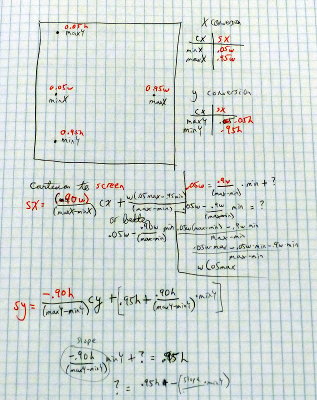 X Conversion
cx | sx
minX | .05w
maxX | .95w
0.05h
maxY
0.05w
minX
0.95w
maxX
0.95h
minY
y conversion
cx | sx
maxY | .05h
minY | .95h
Cartesian to screen
sx = (.90w)/(maxX-minX) cx + w(.05max-.95min)/(max-min)
or better
.05w - .90w min/(max-min)
.05w = .9w/(max-min) · min + ?
.05w - .9w min/(max-min) = ?
.05w(max-min) - .9w min/max-min
.05w max - .05w min - .9w min/max-min
w(.05max
sy = -.90h/(maxY-minY) cy + [.95h + .90h/(maxY-minY) · minY]
slope
-.90h/(maxY-minY) minY + ? = .95h
? = .95h - (slope · minY)